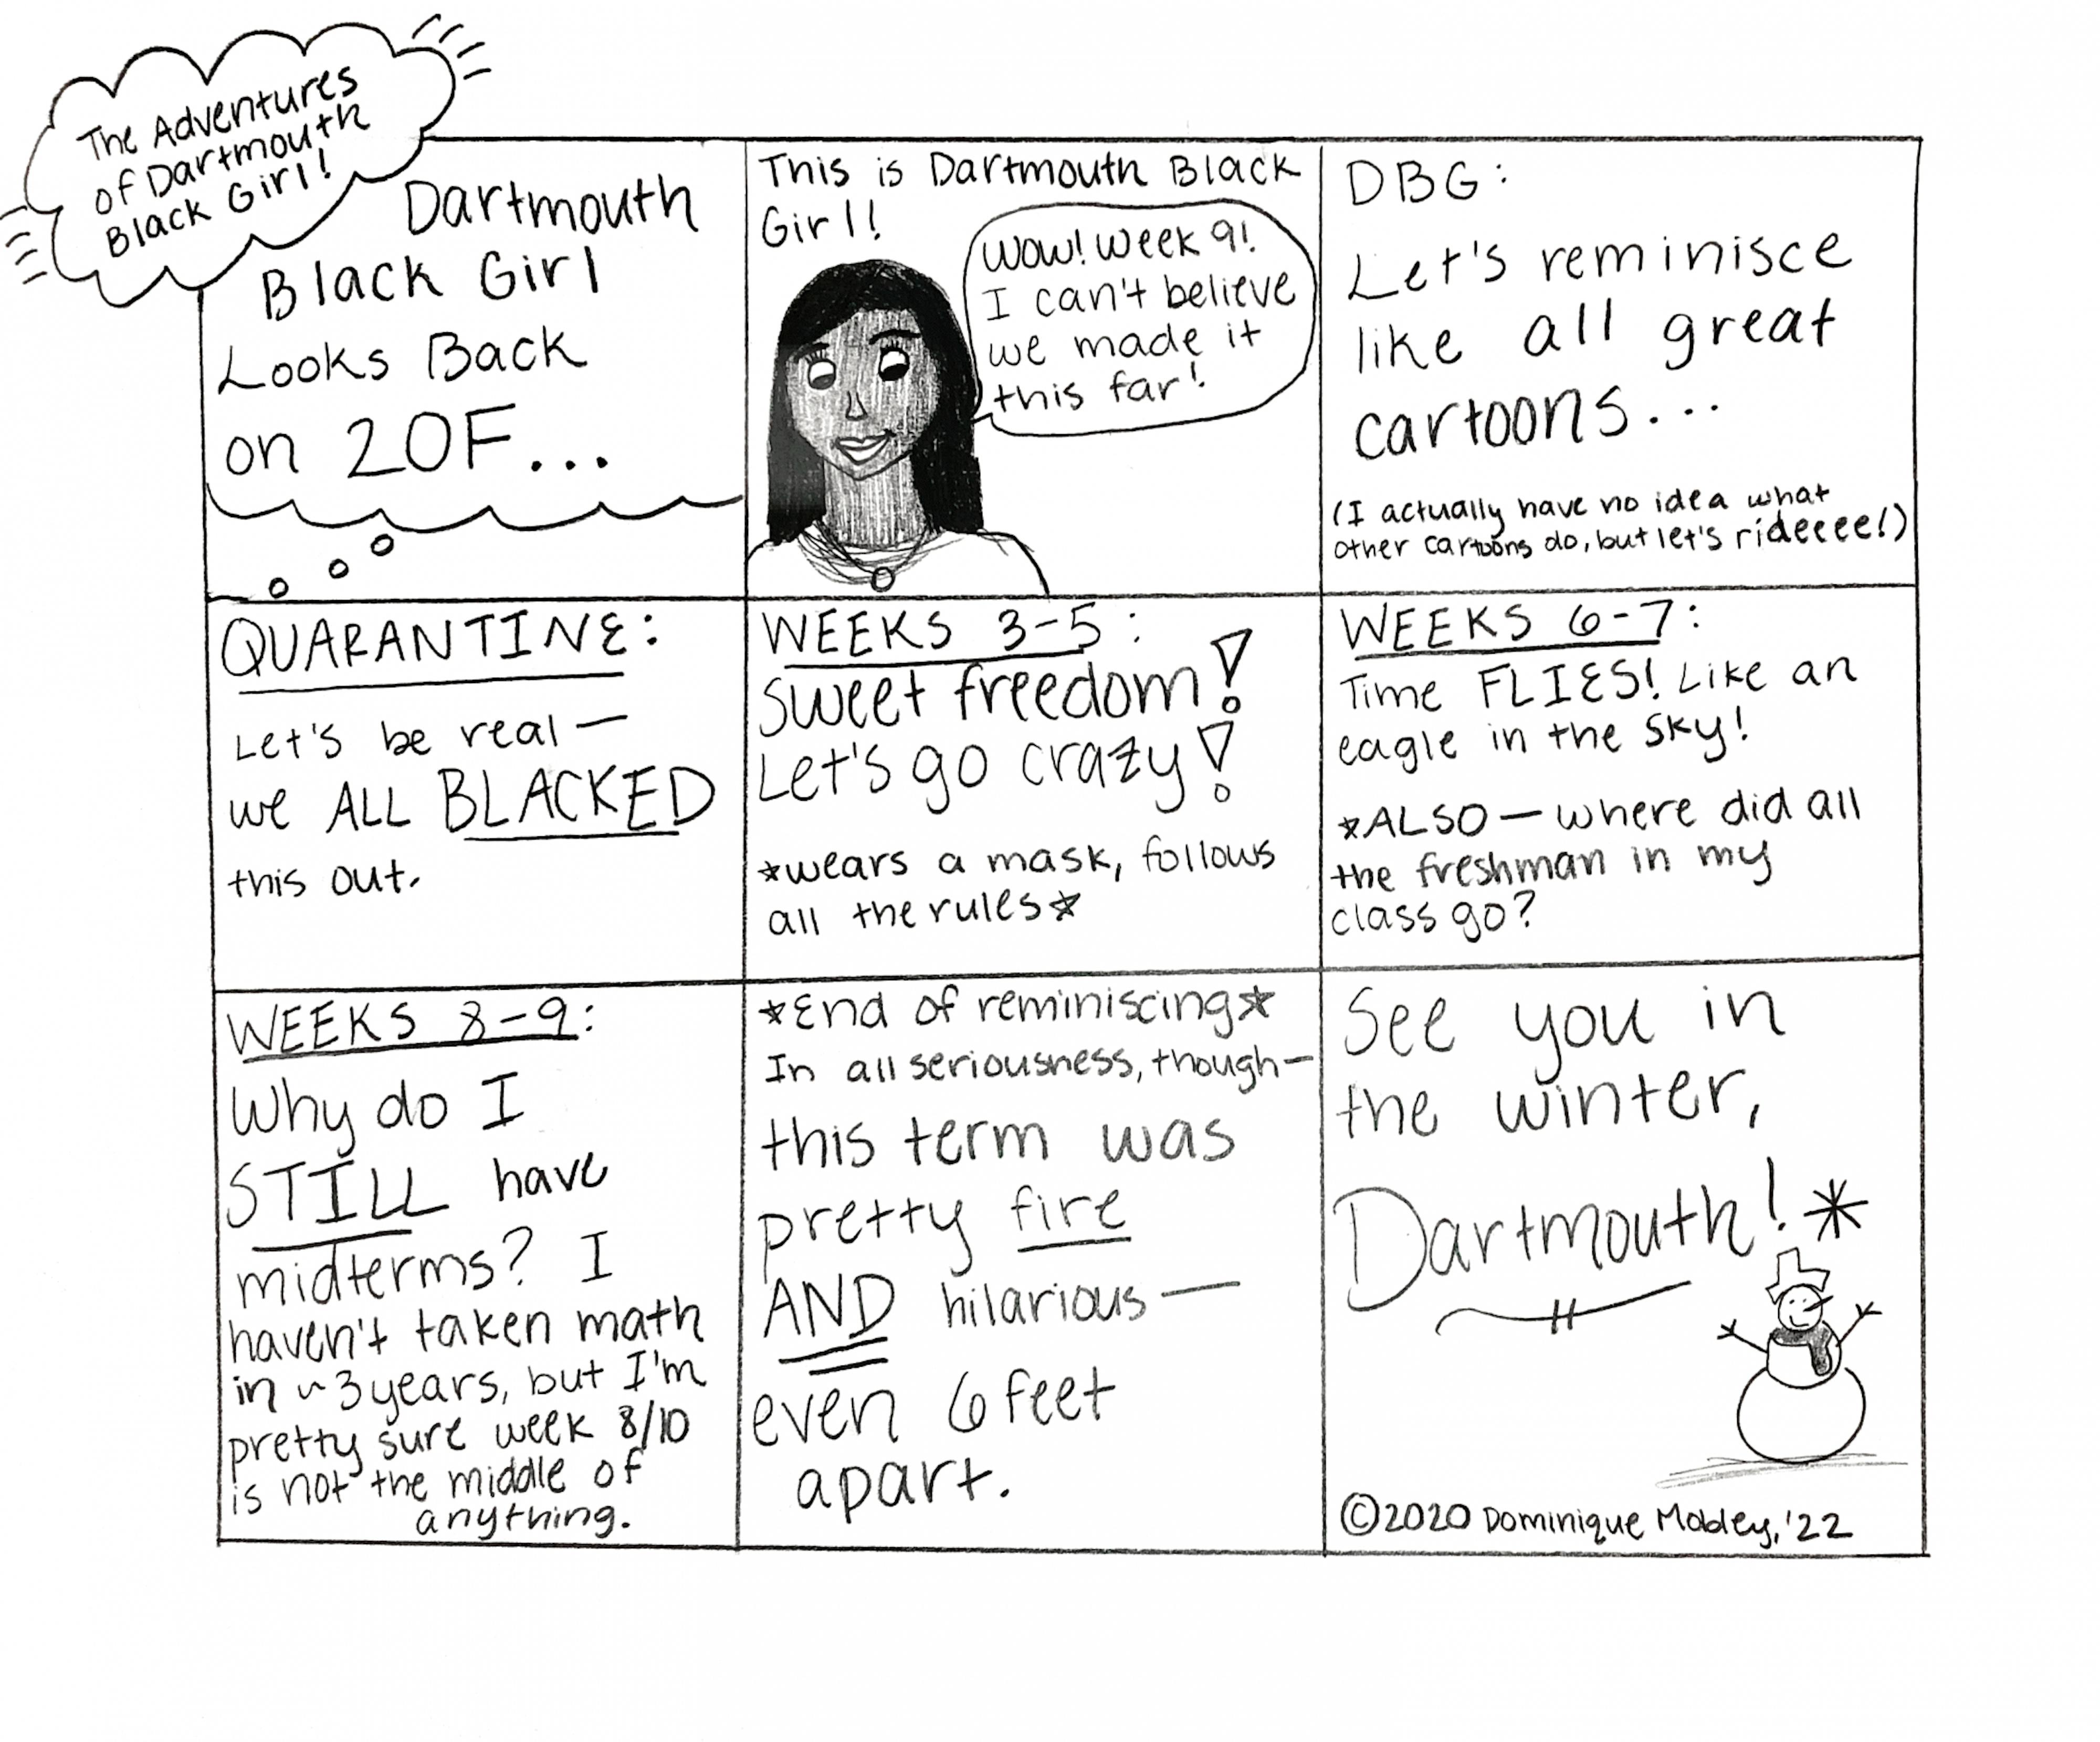 The Adventures
of Dartmouth
Black Girl!
Dartmouth
Black Girl
Looks Back
on 20F...
This is Dartmouth Black
Girl!
Wow! Week 9!
I can't believe
we made it
this far!
DBG:
Let's reminisce
like all great
cartoons...
(I actually have no idea what
other cartoons do, but let's rideeee!)
QUARANTINE:
Let's be real—
we ALL BLACKED
this out.
WEEKS 3-5:
Sweet freedom!
Let's go crazy!
*wears a mask, follows
all the rules*
WEEKS 6-7:
Time FLIES! Like an
eagle in the sky!
*ALSO— where did all
the freshman in my
class go?
WEEKS 8-9:
Why do I
STILL have
midterms? I
haven't taken math
in ~3 years, but I'm
pretty sure week 8/10
is not the middle of
anything.
*End of reminiscing*
In all seriousness, though—
this term was
pretty fire
AND hilarious—
even 6 feet
apart.
See you in
the winter,
Dartmouth!*
©2020 Dominique Mobley, '22